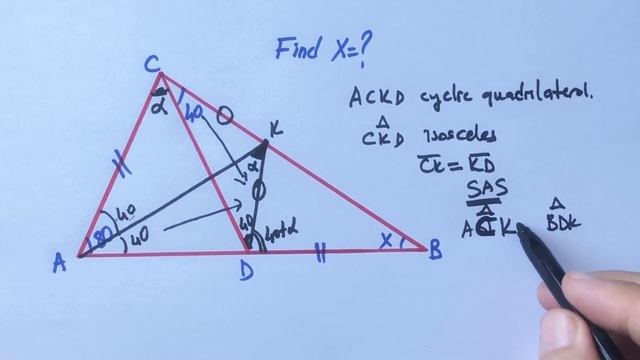 Find X=?
C
α
40
K
α
40
40
80
40
40+α
x
A
D
B
ACKD cyclic quadrilateral.
Δ
CKD isosceles
CK = KD
SAS
Δ Δ
ACK BDK